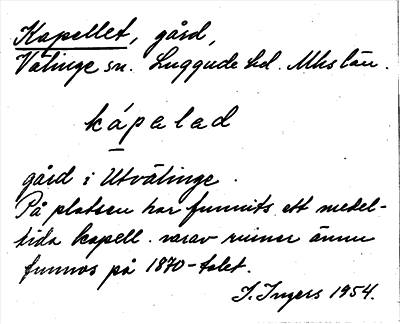 Kapellet, gård,
Välinge sn. Luggude hd. Mhs län.
ká̱pelad
gård i Utvälinge.
På platsen har funnits ett medel-
tida kapell varav ruiner ännu
funnos på 1870-talet.
I. Ingers 1954.